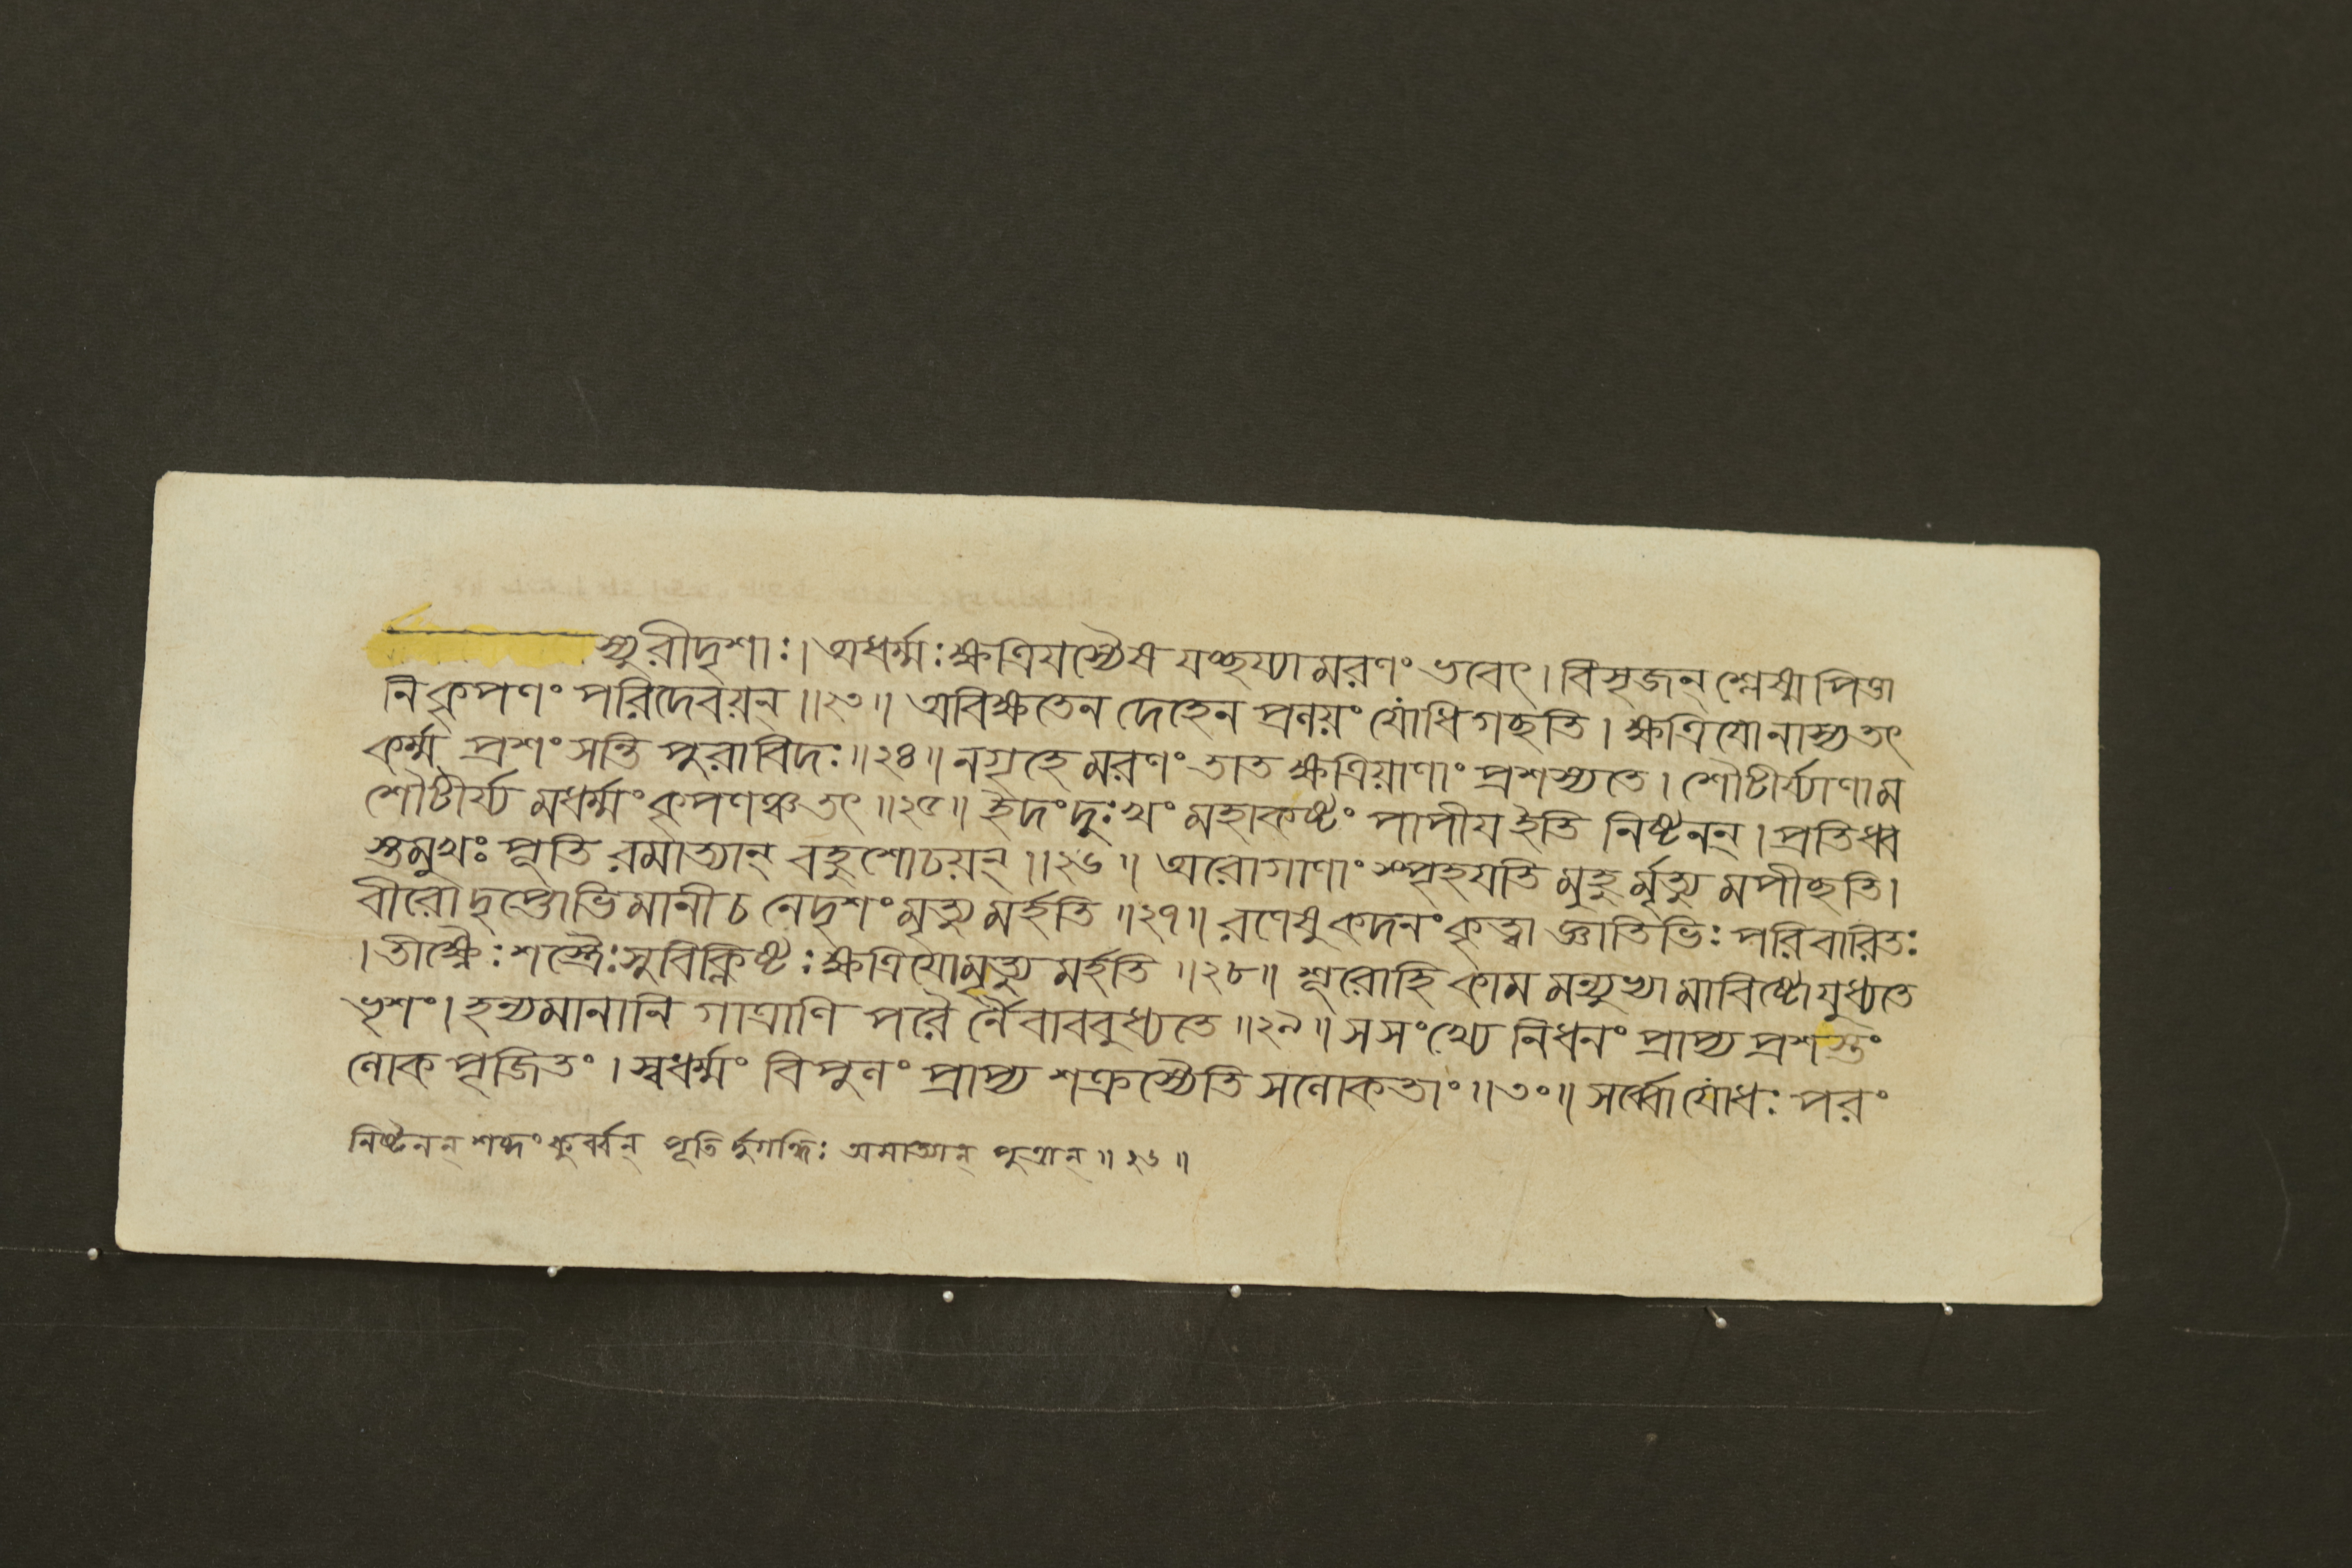 স্যুরীদৃশাঃ। অধর্ম্মঃক্ষত্রিযস্যৈষ যচ্ছয্যামরণং ভবেৎ। বিসৃজন্ শ্লেষ্মাপিত্তা
নিকৃপণং পরিদেবয়ন্॥২৩॥ অবিক্ষতেন দেহেন প্রলয়ং যোধিগচ্ছতি। ক্ষত্রিযোনাস্যতৎ
কর্ম্ম প্রশংসন্তি পুরাবিদঃ॥২৪॥ নগৃহে মরণং তাত ক্ষত্রিয়াণাং প্রশস্যতে। শৌটীর্য্যাণাম
শৌটীর্য্য মধর্ম্মং কৃপণঞ্চতৎ॥২৫॥ ইদংদুঃখং মহাকষ্টং পাপীয ইতি নিষ্টনন্। প্রতিধ্ব
স্তমুখঃ পূতি রমাত্যান্ বহুশোচয়ন্॥২৬॥ অরোগাণাং স্পৃহযতি মুহুর্মৃত্যু মপীচ্ছতি।
বীরোদৃপ্তোভিমানীচ নেদৃশং মৃত্যু মর্হতি॥২৭॥ রণেষু কদনং কৃত্বা জ্ঞাতিভিঃ পরিবারিতঃ
। তীক্ষ্ণৈঃ শস্ত্রৈঃসুবিক্লিষ্টঃ ক্ষত্রিযোমৃত্যু মর্হতি॥২৮॥ শূরোহি কাম মন্যুভ্যা মাবিষ্টোযুধ্যতে
ভৃশং। হন্যমানানি গাত্রাণি পরৈ র্নৈবাববুধ্যতে॥২৯॥ সসংখ্যে নিধনং প্রাপ্য প্রশস্তং
লোক পূজিতং। স্বধর্ম্মং বিপুলং প্রাপ্য শক্রস্যৈতি সলোকতাং॥৩০॥ সর্ব্বোযোধঃ পরং
নিষ্টনন্ শব্দং কুর্ব্বন্ পূতি র্দুর্গন্ধিঃ অমাত্যান্ পুত্রান্॥২৬॥